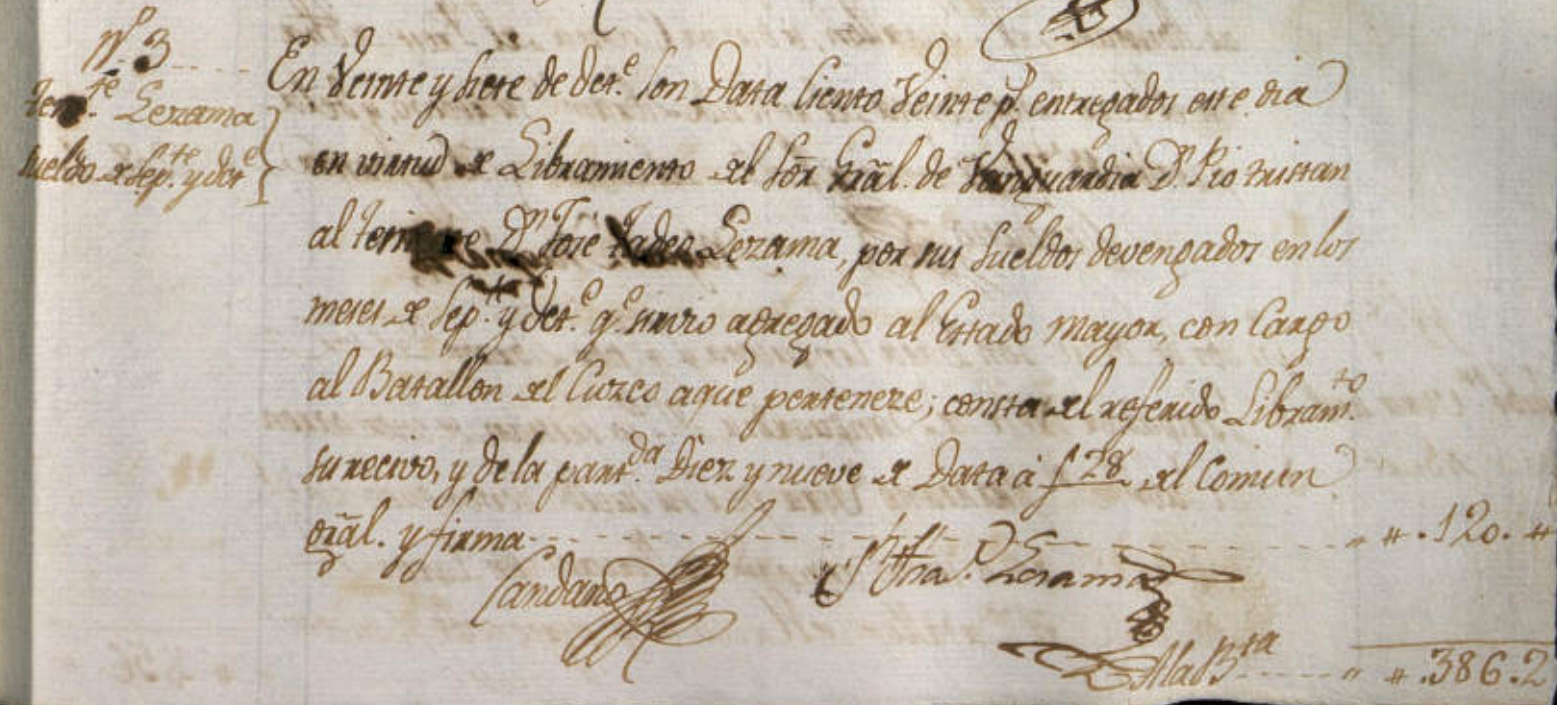 N. 3
Ten.te Lezama
sueldo de Sep.te y Oct.e
En Veinte y siete de Oct.e son Data Ciento Veinte p.s entregados este dia
en virtud de Libramiento del Sõr Grãl. de Vanguardia D. Pio tristan
al teniente D.n Jose tadeo Lezama, por sus sueldos devengados en los
meses de Sep.te y Oct.e q.e sirvio agregado al Estado mayor, con Cargo
al Batallon del Cuzco aque perteneze; consta del referido Libram.to
su recivo, y de la part.da Diez y nueve de Data á f 28 del Comun
grãl. y firma
" " . 120. "
Candano
Lesama
A la B.ta " " .386.2